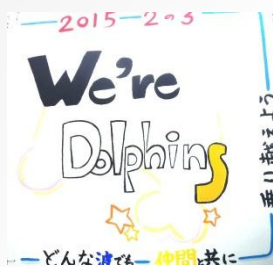 2015-2の3
We're
Dolphins
どんな波でも 仲間と共に
乗り越えよう